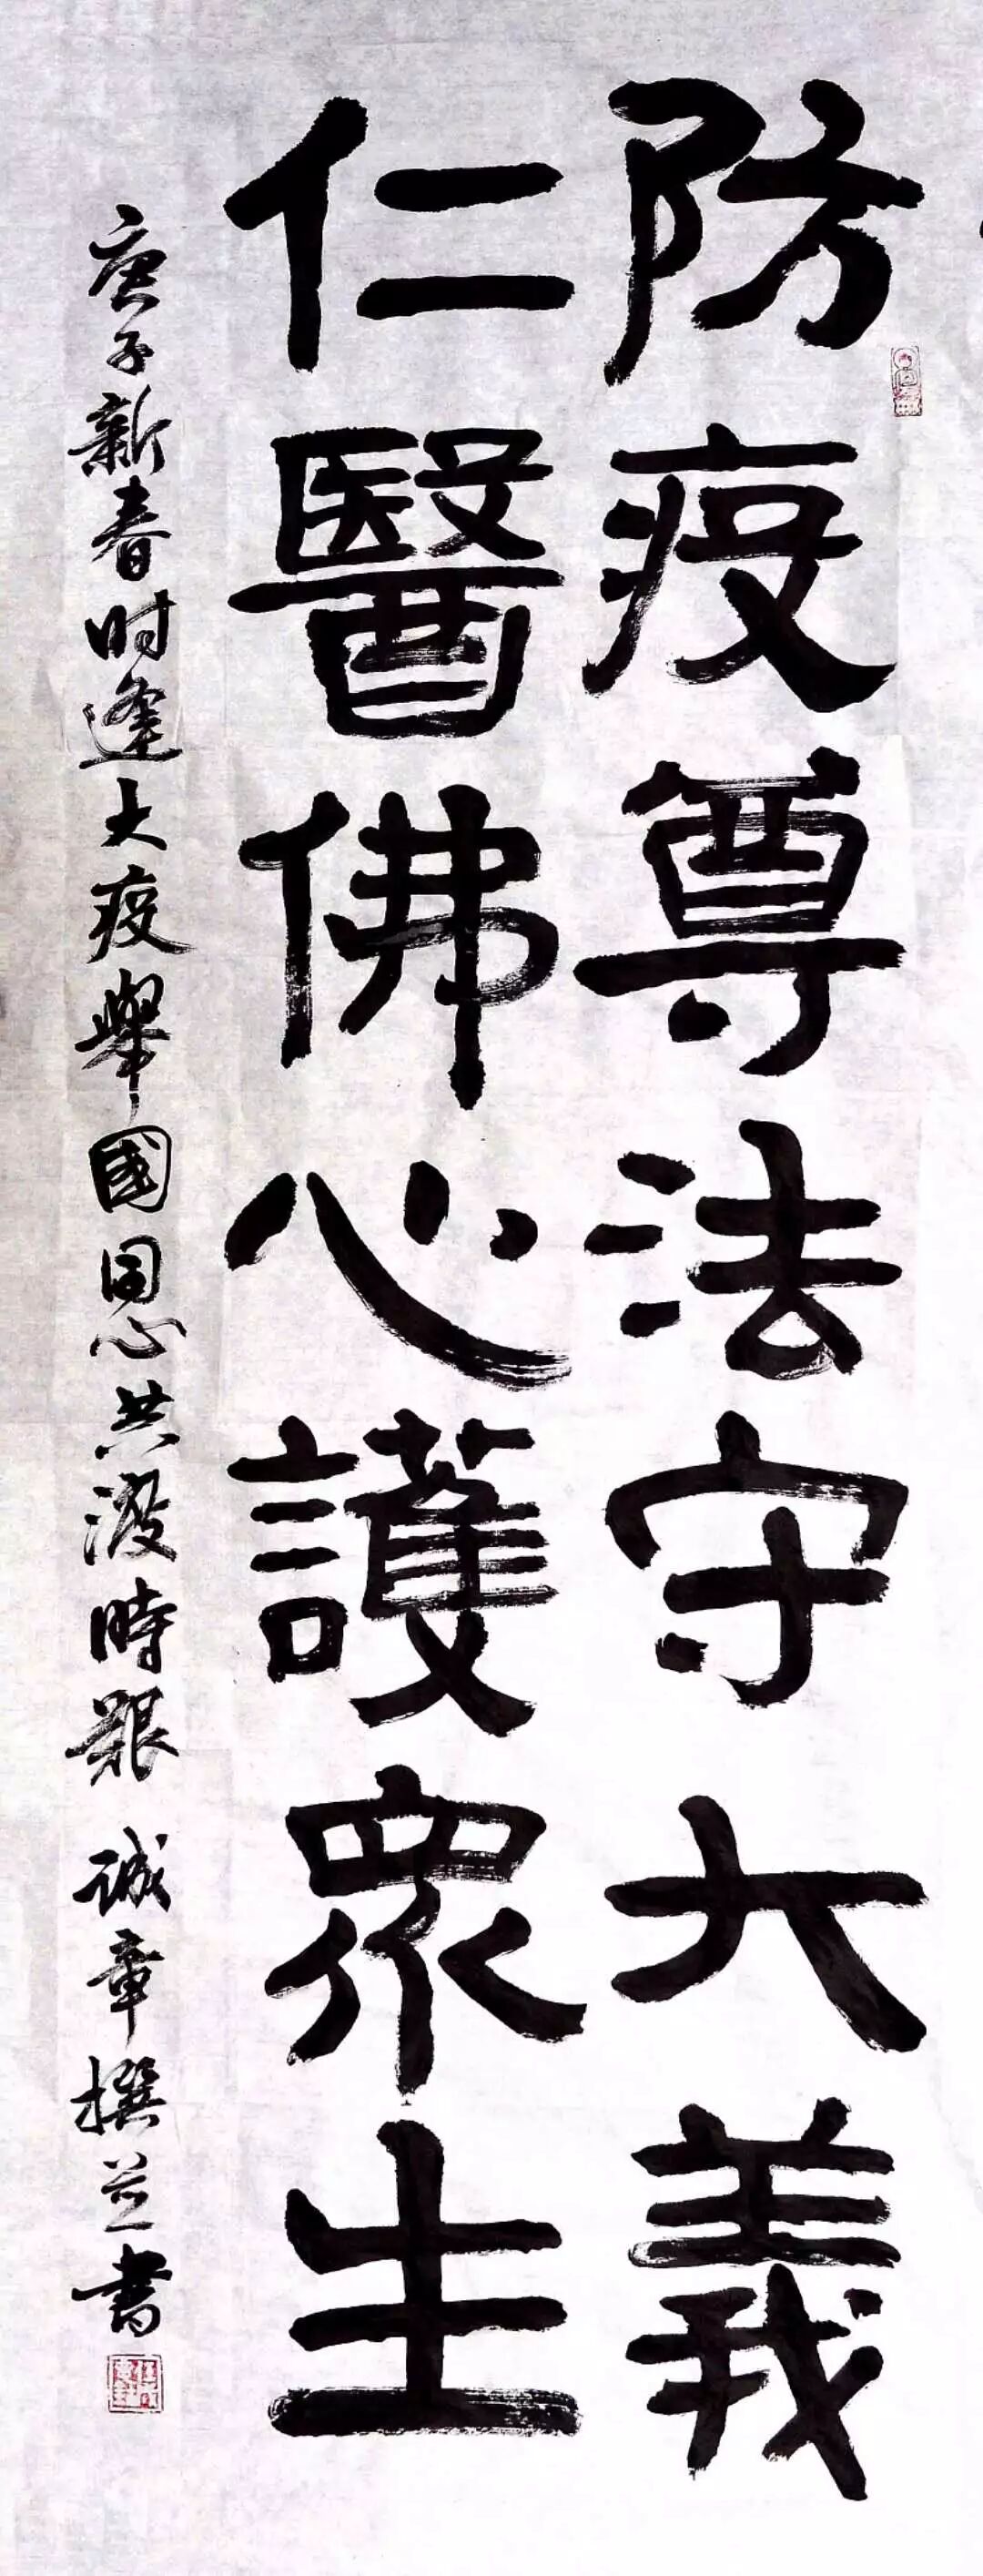 防疫尊法守大義
仁醫佛心護眾生
庚子新春时逢大疫舉國同心共渡時艱 诚章撰并書